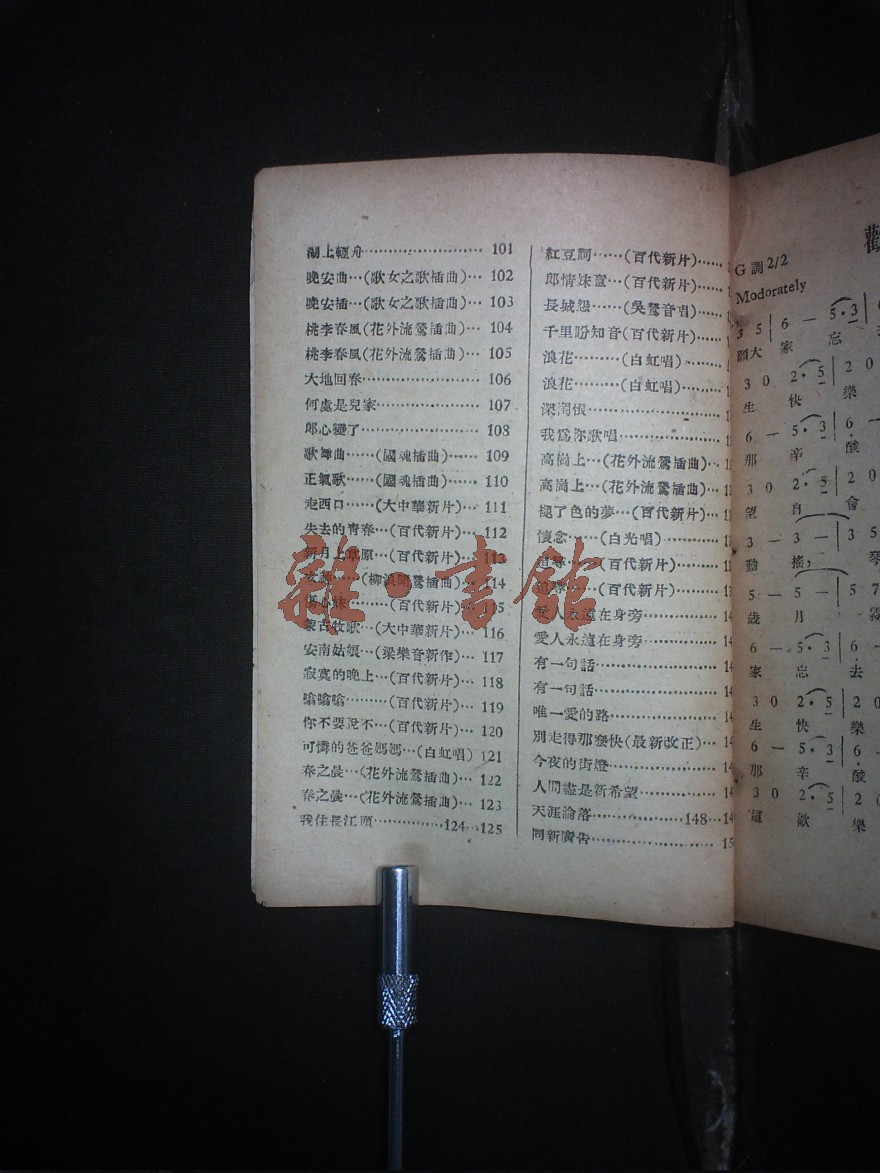 湖上輕舟…………………… 101
晚安曲…(歌女之歌插曲)… 102
晚安插…(歌女之歌插曲)… 103
桃李春風(花外流鶯插曲)… 104
桃李春風(花外流鶯插曲)… 105
大地回春…………………… 106
何處是兒家………………… 107
郎心變了…………………… 108
歌舞曲……(國魂插曲)…… 109
正氣歌……(國魂插曲)…… 110
走西口……(大中華新片)… 111
失去的靑春…(百代新片)… 112
新月上草原…(百代新片)… 113
(柳浪聞鶯插曲)… 114
傷心妹………(百代新片)… 115
蒙古牧歌…(大中華新片)… 116
安南姑娘…(梁樂音新作)… 117
寂寞的晚上…(百代新片)… 118
嗆嗆嗆………(百代新片)… 119
你不要說不…(百代新片)… 120
可憐的爸爸媽媽…(白虹唱) 121
春之晨…(花外流鶯插曲)… 122
春之晨…(花外流鶯插曲)… 123
我住長江頭………………124…125
紅豆詞……(百代新片)……
郎情妹意…(百代新片)……
長城怨……(吳鶯音唱)……
千里盼知音(百代新片)……
浪花………(白虹唱)………
浪花………(白虹唱)………
深閨恨……………………
我爲你歌唱………………
高崗上…(花外流鶯插曲)…
高崗上…(花外流鶯插曲)…
褪了色的夢…(百代新片)…
懷念……(白光唱)………
(百代新片)……
(百代新片)……
愛人永遠在身旁…………
愛人永遠在身旁…………
有一句話…………………
有一句話…………………
唯一愛的路………………
別走得那麼快(最新改正)…
今夜的街燈………………
人間盡是新希望…………
天涯淪落…………………148…
同新廣告…………………
G 調 2/2
Modorately
3 5 | 6 — 5·3 |
願大 家 忘
3 0 2·5 | 2 0
生 快 樂
6 — 5·3 | 6·
那 辛 酸
3 0 2·5 | 2 0
望 自 會
3 — 3 — 3 5
動 搖, 琴
5 — 5 — 5 7
歲 月
6 — 5·3 | 6·
家 忘 去
3 0 2·5 | 2 0
生 快 樂
6 — 5·3 | 6·
那 辛 酸
3 0 2·5 | 2
這 歡 樂
雜·書館